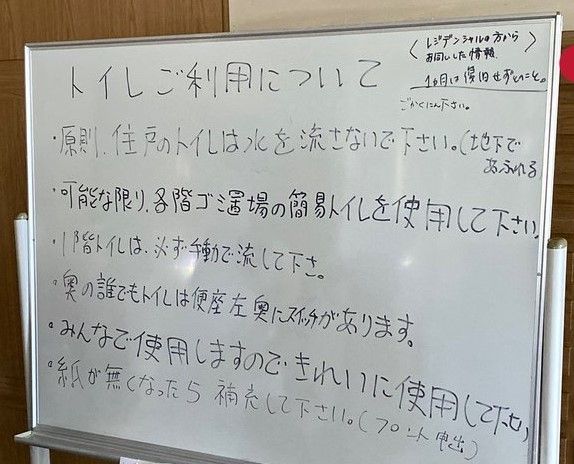 トイレご利用について
〈レジデンシャルの方から
お伺いした情報〉
1ヵ月は復旧せずとのこと。
ごかくにん下さい。
・原則、住戸のトイレは水を流さないで下さい。(地下で
あふれる
・可能な限り、各階ゴミ置場の簡易トイレを使用して下さい。
・1階トイレは、必ず手動で流して下さ。
・奥の誰でもトイレは便座左奥にスイッチがあります。
・みんなで使用しますのできれいに使用して下さい
・紙が無くなったら補充して下さい。(フロント申出)